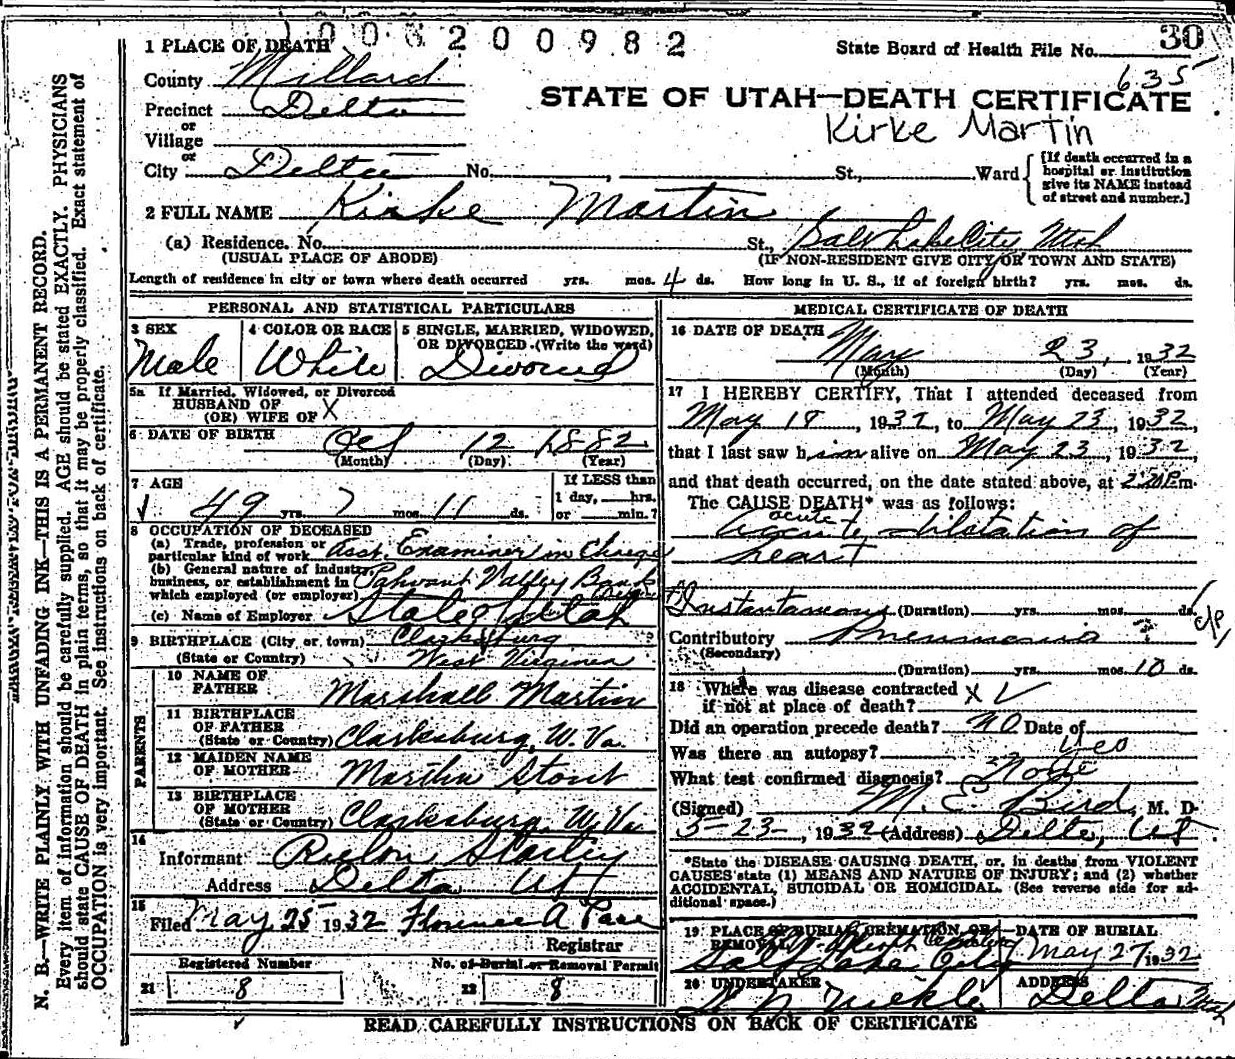 1003200982
State Board of Health File No. 30
635
STATE OF UTAH—DEATH CERTIFICATE
Kirke Martin
1 PLACE OF DEATH
County Millard
Precinct Delta
or
Village
or
City Delta No. , St., Ward
[If death occurred in a
hospital or institution
give its NAME instead
of street and number.]
2 FULL NAME Kirke Martin
(a) Residence. No. St., Salt Lake City Utah
(USUAL PLACE OF ABODE) (IF NON-RESIDENT GIVE CITY OR TOWN AND STATE)
Length of residence in city or town where death occurred yrs. mos. 4 ds. How long in U. S., if of foreign birth? yrs. mos. ds.
PERSONAL AND STATISTICAL PARTICULARS
3 SEX
Male
4 COLOR OR RACE
White
5 SINGLE, MARRIED, WIDOWED,
OR DIVORCED (Write the word)
Divorced
5a If Married, Widowed, or Divorced
HUSBAND OF
(OR) WIFE OF X
6 DATE OF BIRTH Oct 12 1882
(Month) (Day) (Year)
7 AGE
49 yrs. 7 mos. 11 ds.
If LESS than
1 day, hrs.
or min.?
8 OCCUPATION OF DECEASED
(a) Trade, profession or
particular kind of work Asst. Examiner in Charge
(b) General nature of industry,
business, or establishment in Pahvant Valley Bank
which employed (or employer)
(c) Name of Employer State of Utah
9 BIRTHPLACE (City or town) Clarksburg
(State or Country) West Virginia
PARENTS
10 NAME OF
FATHER Marshall Martin
11 BIRTHPLACE
OF FATHER
(State or Country) Clarksburg, W. Va.
12 MAIDEN NAME
OF MOTHER Martha Stout
13 BIRTHPLACE
OF MOTHER
(State or Country) Clarksburg, W. Va.
14
Informant Rulon Starley
Address Delta Ut
15
Filed May 25 1932 Florence A Pace
Registrar
Registered Number No. of Burial or Removal Permit
21 8 22 8
MEDICAL CERTIFICATE OF DEATH
16 DATE OF DEATH
May 23, 1932
(Month) (Day) (Year)
17 I HEREBY CERTIFY, That I attended deceased from
May 18, 1932, to May 23, 1932,
that I last saw him alive on May 23, 1932,
and that death occurred, on the date stated above, at m.
The CAUSE DEATH* was as follows:
acute
dilatation of
heart
Instantaneous (Duration) yrs. mos. ds.
Contributory Pneumonia ?
(Secondary)
(Duration) yrs. mos. 10 ds.
18 Where was disease contracted
if not at place of death? X
Did an operation precede death? no Date of
Was there an autopsy? yes
What test confirmed diagnosis?
(Signed) M. E. Bird, M. D.
5-23-, 1932 (Address) Delta, Ut
*State the DISEASE CAUSING DEATH, or, in deaths from VIOLENT
CAUSES state (1) MEANS AND NATURE OF INJURY; and (2) whether
ACCIDENTAL, SUICIDAL OR HOMICIDAL. (See reverse side for ad-
ditional space.)
19 PLACE OF BURIAL, CREMATION, OR
REMOVAL
Salt Lake City
DATE OF BURIAL
May 27 1932
20 UNDERTAKER
ADDRESS
Delta Utah
READ CAREFULLY INSTRUCTIONS ON BACK OF CERTIFICATE
N. B.—WRITE PLAINLY WITH UNFADING INK—THIS IS A PERMANENT RECORD.
Every item of information should be carefully supplied. AGE should be stated EXACTLY. PHYSICIANS
should state CAUSE OF DEATH in plain terms, so that it may be properly classified. Exact statement of
OCCUPATION is very important. See instructions on back of certificate.